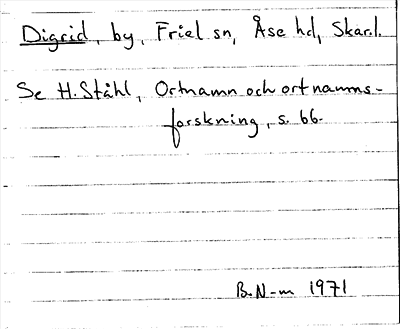 Digrid, by, Friel sn, Åse hd, Skar.l.
Se H. Ståhl, Ortnamn och ortnamns-
forskning, s. 66.
B. N-m 1971